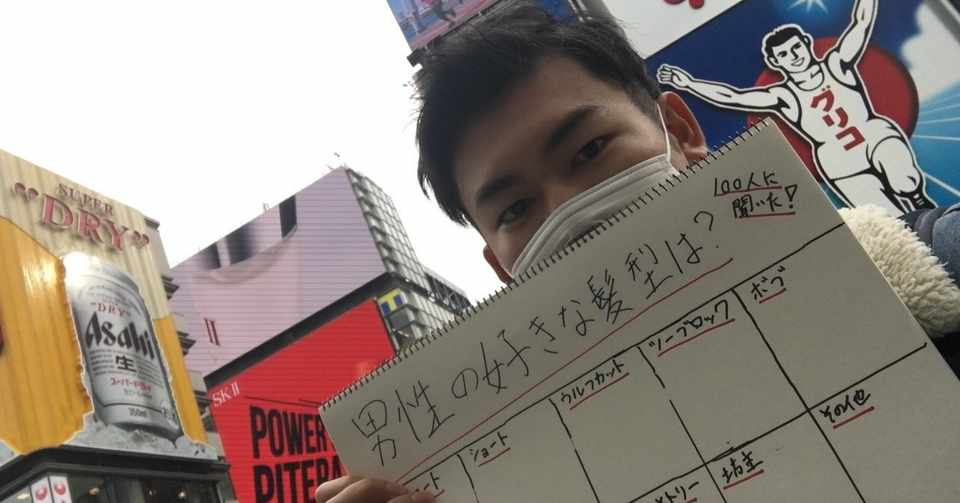 SUPER
"DRY"
"DRY"
Asahi
生
スーパードライ
350ml
SKII
POWER
PITERA
グリコ
100人に
聞いた!
男性の好きな髪型は?
ショート
ウルフカット
ツーブロック
ボブ
坊主
その他